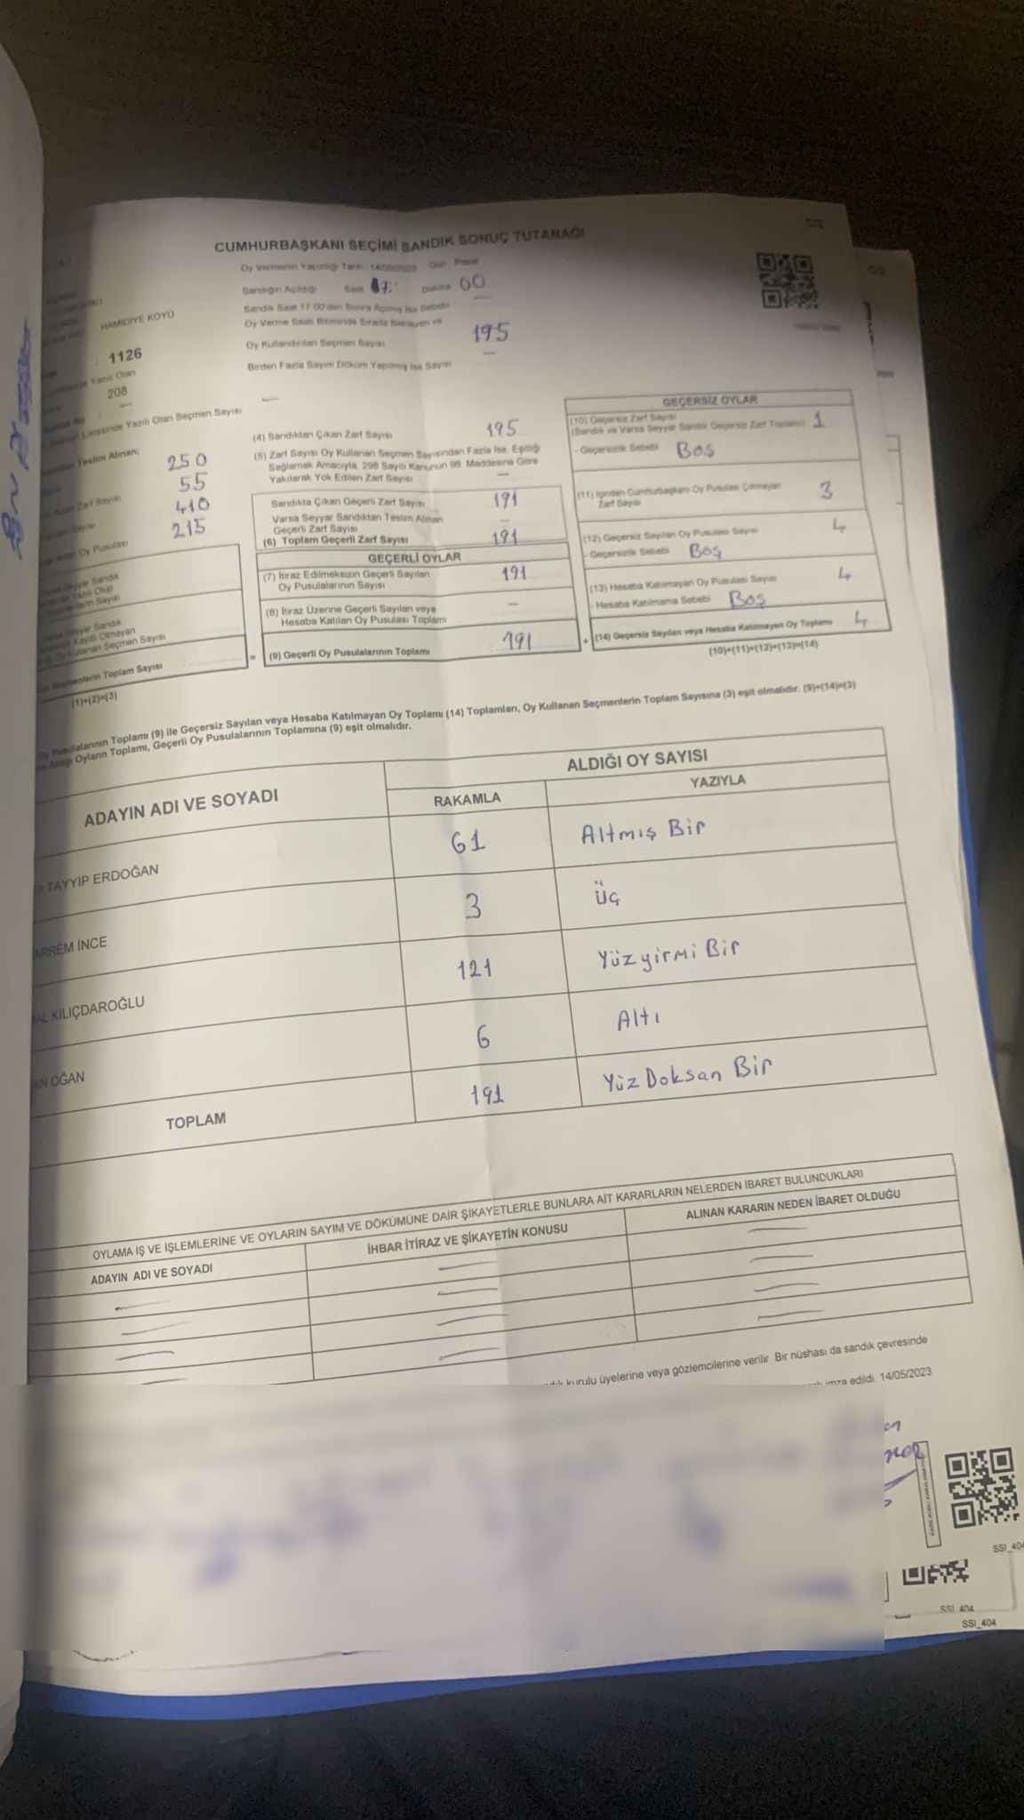 CUMHURBAŞKANI SEÇİMİ SANDIK SONUÇ TUTANAĞI
Oy Vermenin Yapıldığı Tarih 14/05/2023 Gün Pazar
Sandığın Açıldığı Saat 17: Dakika 00
Sandık Saat 17:00'den Sonra Açılmış İse Sebebi
HAMİDİYE KÖYÜ
Oy Kullandırılan Seçmen Sayısı 195
1126
Birden Fazla Sayım Döküm Yapılmış İse Sayısı
208
Yazılı Olan Seçmen Sayısı
Teslim Alınan
250
55
410
215
Oy Pusulası
Toplam Sayısı
(1)+(2)=(3)
(4) Sandıktan Çıkan Zarf Sayısı 195
(5) Zarf Sayısı Oy Kullanan Seçmen Sayısından Fazla İse, Eşitliği
Sağlamak Amacıyla, 298 Sayılı Kanunun 98. Maddesine Göre
Yakılarak Yok Edilen Zarf Sayısı —
Sandıkta Çıkan Geçerli Zarf Sayısı 191
Varsa Seyyar Sandıktan Teslim Alınan
Geçerli Zarf Sayısı —
(6) Toplam Geçerli Zarf Sayısı 191
GEÇERLİ OYLAR
(7) İtiraz Edilmeksizin Geçerli Sayılan
Oy Pusulalarının Sayısı 191
(8) İtiraz Üzerine Geçerli Sayılan veya
Hesaba Katılan Oy Pusulası Toplamı —
(9) Geçerli Oy Pusulalarının Toplamı 191
GEÇERSİZ OYLAR
(10) Geçersiz Zarf Sayısı
(Sandık ve Varsa Seyyar Sandık Geçersiz Zarf Toplamı) 1
- Geçersizlik Sebebi Boş
(11) İçinden Cumhurbaşkanı Oy Pusulası Çıkmayan
Zarf Sayısı 3
(12) Geçersiz Sayılan Oy Pusulası Sayısı 4
- Geçersizlik Sebebi Boş
(13) Hesaba Katılmayan Oy Pusulası Sayısı 4
- Hesaba Katılmama Sebebi Boş
+ (14) Geçersiz Sayılan veya Hesaba Katılmayan Oy Toplamı 4
(10)+(11)+(12)+(13)=(14)
Oy Pusulalarının Toplamı (9) ile Geçersiz Sayılan veya Hesaba Katılmayan Oy Toplamı (14) Toplamları, Oy Kullanan Seçmenlerin Toplam Sayısına (3) eşit olmalıdır. (9)+(14)=(3)
Oyların Toplamı, Geçerli Oy Pusulalarının Toplamına (9) eşit olmalıdır.
ADAYIN ADI VE SOYADI
ALDIĞI OY SAYISI
RAKAMLA YAZIYLA
TAYYIP ERDOĞAN 61 Altmış Bir
ARREM İNCE 3 Üç
AL KILIÇDAROĞLU 121 Yüzyirmi Bir
AN OĞAN 6 Altı
TOPLAM 191 Yüz Doksan Bir
OYLAMA İŞ VE İŞLEMLERİNE VE OYLARIN SAYIM VE DÖKÜMÜNE DAİR ŞİKAYETLERLE BUNLARA AİT KARARLARIN NELERDEN İBARET BULUNDUKLARI
ADAYIN ADI VE SOYADI İHBAR İTİRAZ VE ŞİKAYETİN KONUSU ALINAN KARARIN NEDEN İBARET OLDUĞU
kurulu üyelerine veya gözlemcilerine verilir. Bir nüshası da sandık çevresinde
imza edildi. 14/05/2023
SSİ_404
SSİ_404
SSİ_404